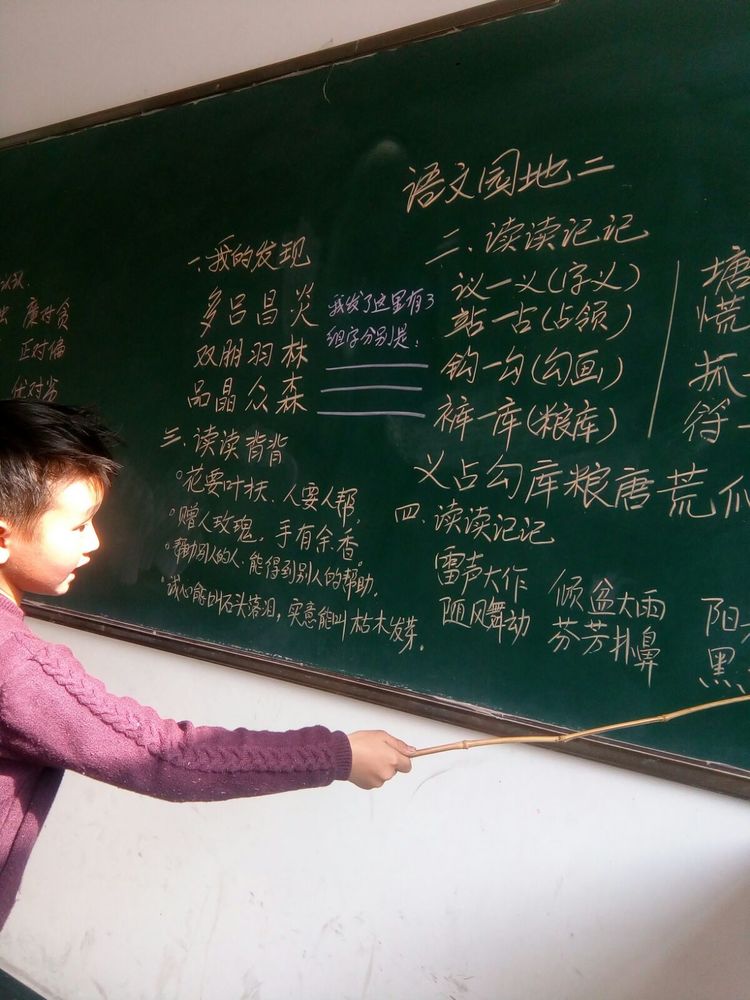 语文园地二
认队
廉对贪
正对偏
优对劣
一、我的发现
多吕昌炎
双朋羽林
品晶众森
我发了这里有3
组字分别是：
三、读读背背
花要叶扶，人要人帮。
赠人玫瑰，手有余香。
帮助别人的人，能得到别人的帮助。
诚心能叫石头落泪，实意能叫枯木发芽。
二、读读记记
议一义(字义)
站一占(占领)
钩一勾(勾画)
裤一库(粮库)
塘
慌
抓一
符一
义占勾库粮唐荒
四、读读记记
雷声大作 倾盆大雨
随风舞动 芬芳扑鼻
阳
黑